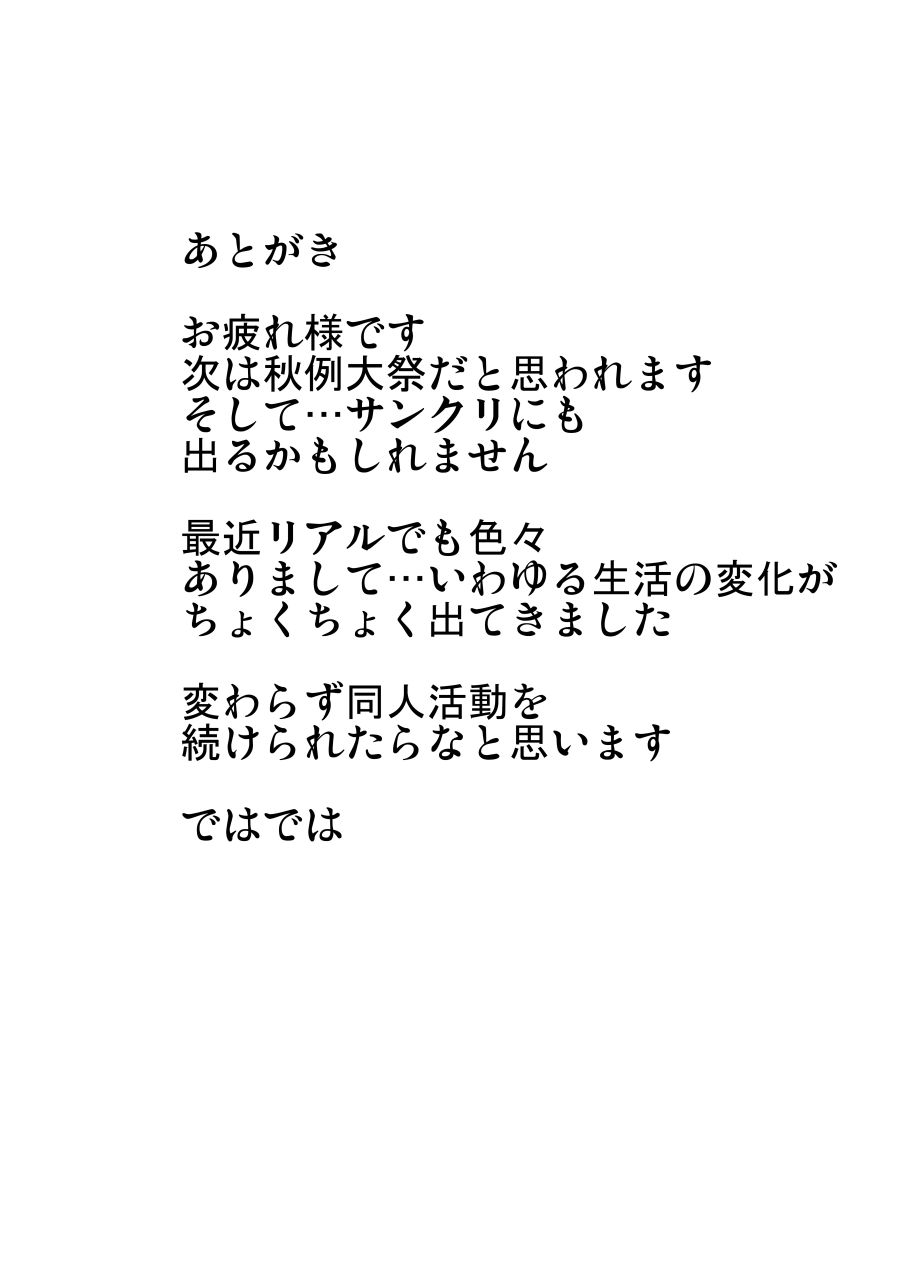 あとがき
お疲れ様です
次は秋例大祭だと思われます
そして…サンクリにも
出るかもしれません
最近リアルでも色々
ありまして…いわゆる生活の変化が
ちょくちょく出てきました
変わらず同人活動を
続けられたらなと思います
ではでは